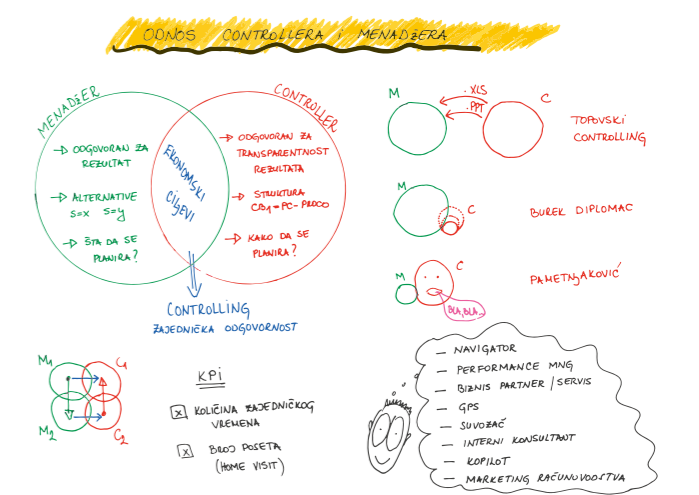 ODNOS CONTROLLERA i MENADŽERA
MENADŽER
→ ODGOVORAN ZA
REZULTAT
→ ALTERNATIVE
S=X S=Y
→ ŠTA DA SE
PLANIRA?
EKONOMSKI
CILJEVI
CONTROLLER
→ ODGOVORAN ZA
TRANSPARENTNOST
REZULTATA
→ STRUKTURA
→ KAKO DA SE
PLANIRA?
CONTROLLING
ZAJEDNIČKA ODGOVORNOST
M
.XLS
.PPT
C
TOPOVSKI
CONTROLLING
M
C
BUREK DIPLOMAC
M
C
BLA, BLA...
PAMETNJAKOVIĆ
M1
C1
M2
C2
KPi
x KOLIČINA ZAJEDNIČKOG
VREMENA
x BROJ POSETA
(HOME VISIT)
— NAVIGATOR
— PERFORMANCE MNG
— BIZNIS PARTNER / SERVIS
— GPS
— SUVOZAČ
— INTERNI KONSULTANT
— KOPILOT
— MARKETING RAČUNOVODSTVA